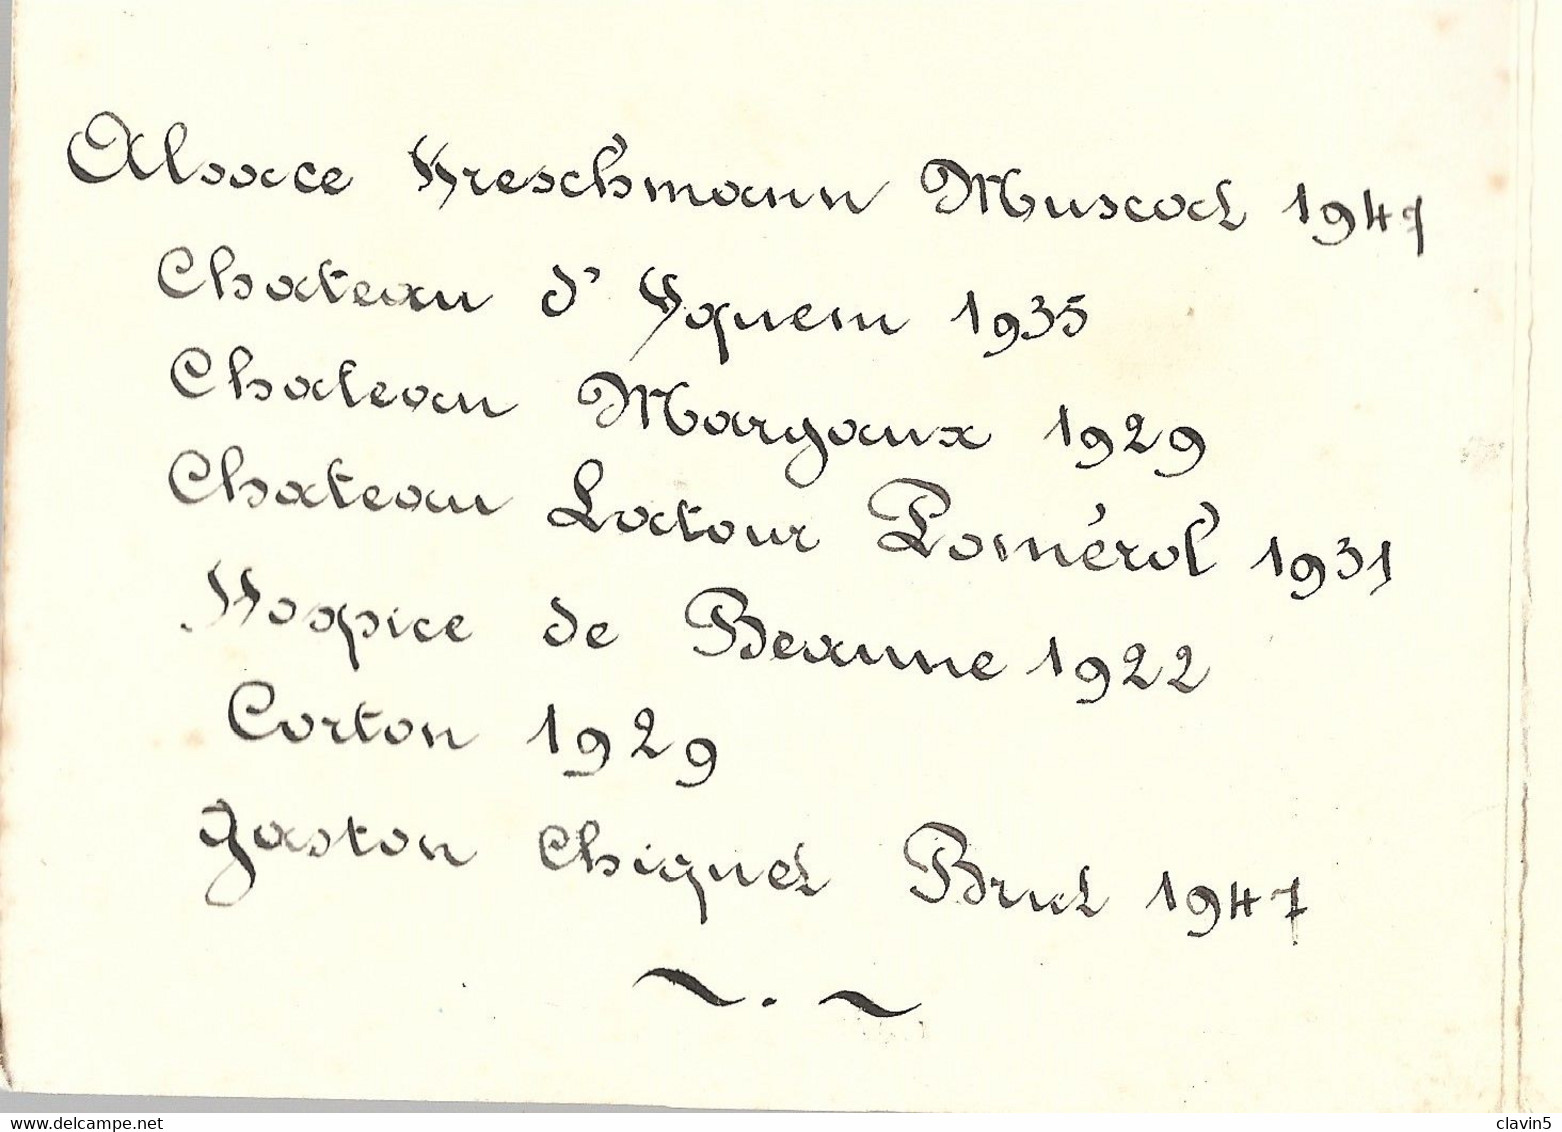 Alsace Kreschmann Muscat 1947
Chateau d'Yquem 1935
Chateau Margaux 1929
Chateau Latour Pomérol 1931
Hospice de Beaune 1922
Corton 1929
Gaston Chiquet Brut 1947
delcampe.net
clavin5